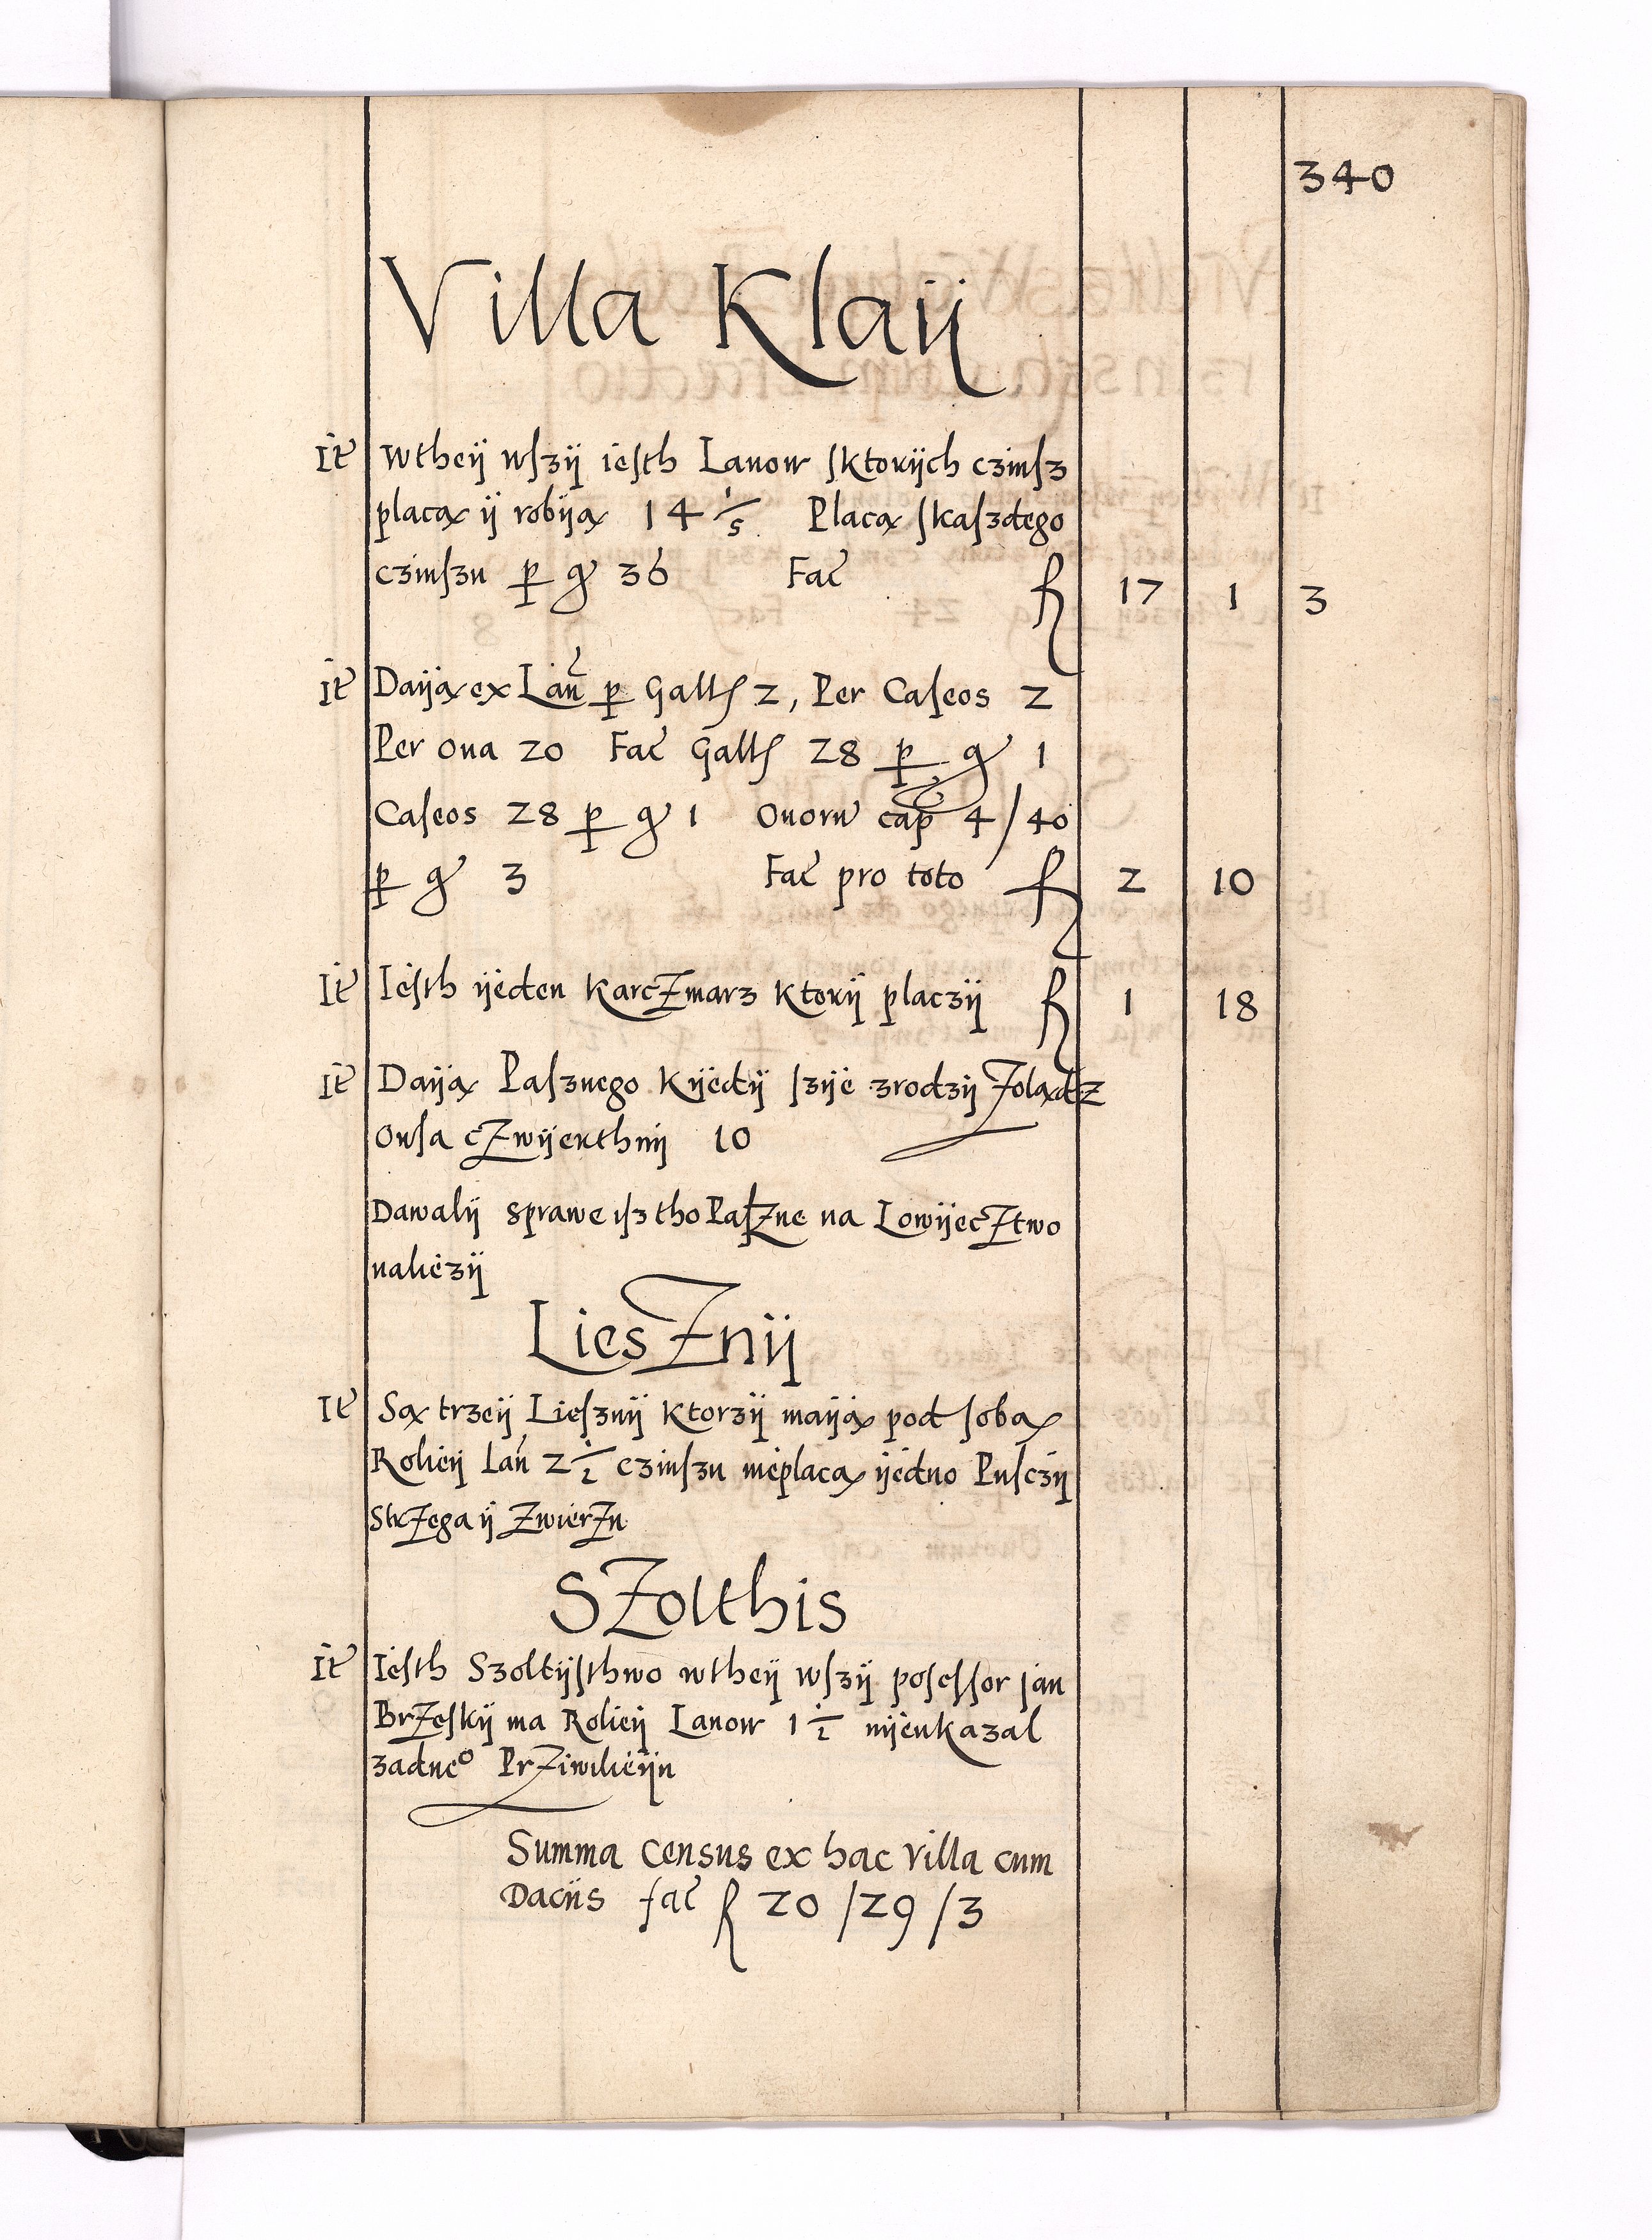 340
Villa Klaij
It Wtheij wſzij ieſth Lanow ſktorijch czinſz
placą ij robiją 14 1/5 Placą ſkaſzdego
czinſzu p gr 36 Fac fl 17 1 3
It Daiją ex Lan p Galls 2, Per Caſeos 2
Per oua 20 Fac Galls 28 p gr 1
Caſeos 28 p gr 1 Ouoru cap 4/40
p gr 3 Fac pro toto fl 2 10
It Ieſth ijeden KarcZmarz Ktorij placzij fl 1 18
It Daiją Paſznego Kijedij ſzije zrodzij Zolądz
Owſa cZwijerthnij 10
Dawalij sprawe iſz tho PaſZne na LowijecZtwo
naliezij
LiesZnij
It Są trzeij Lieſznij Ktorzij maiją pod ſobą
Rolieij Lan 2 1/2 czinſzu nieplacą ijedno Puſczij
StrZega ij ZwierZu
SZolthis
It Ieſth Szoltijſthwo wtheij wſzij poſeſſor Jan
BrZeſkij ma Roliei̇j Lanow 1 1/2 nijeukazal
zadneo PrZiwilieiju
Summa census ex hac villa cum
Daciis fac fl 20/29/3